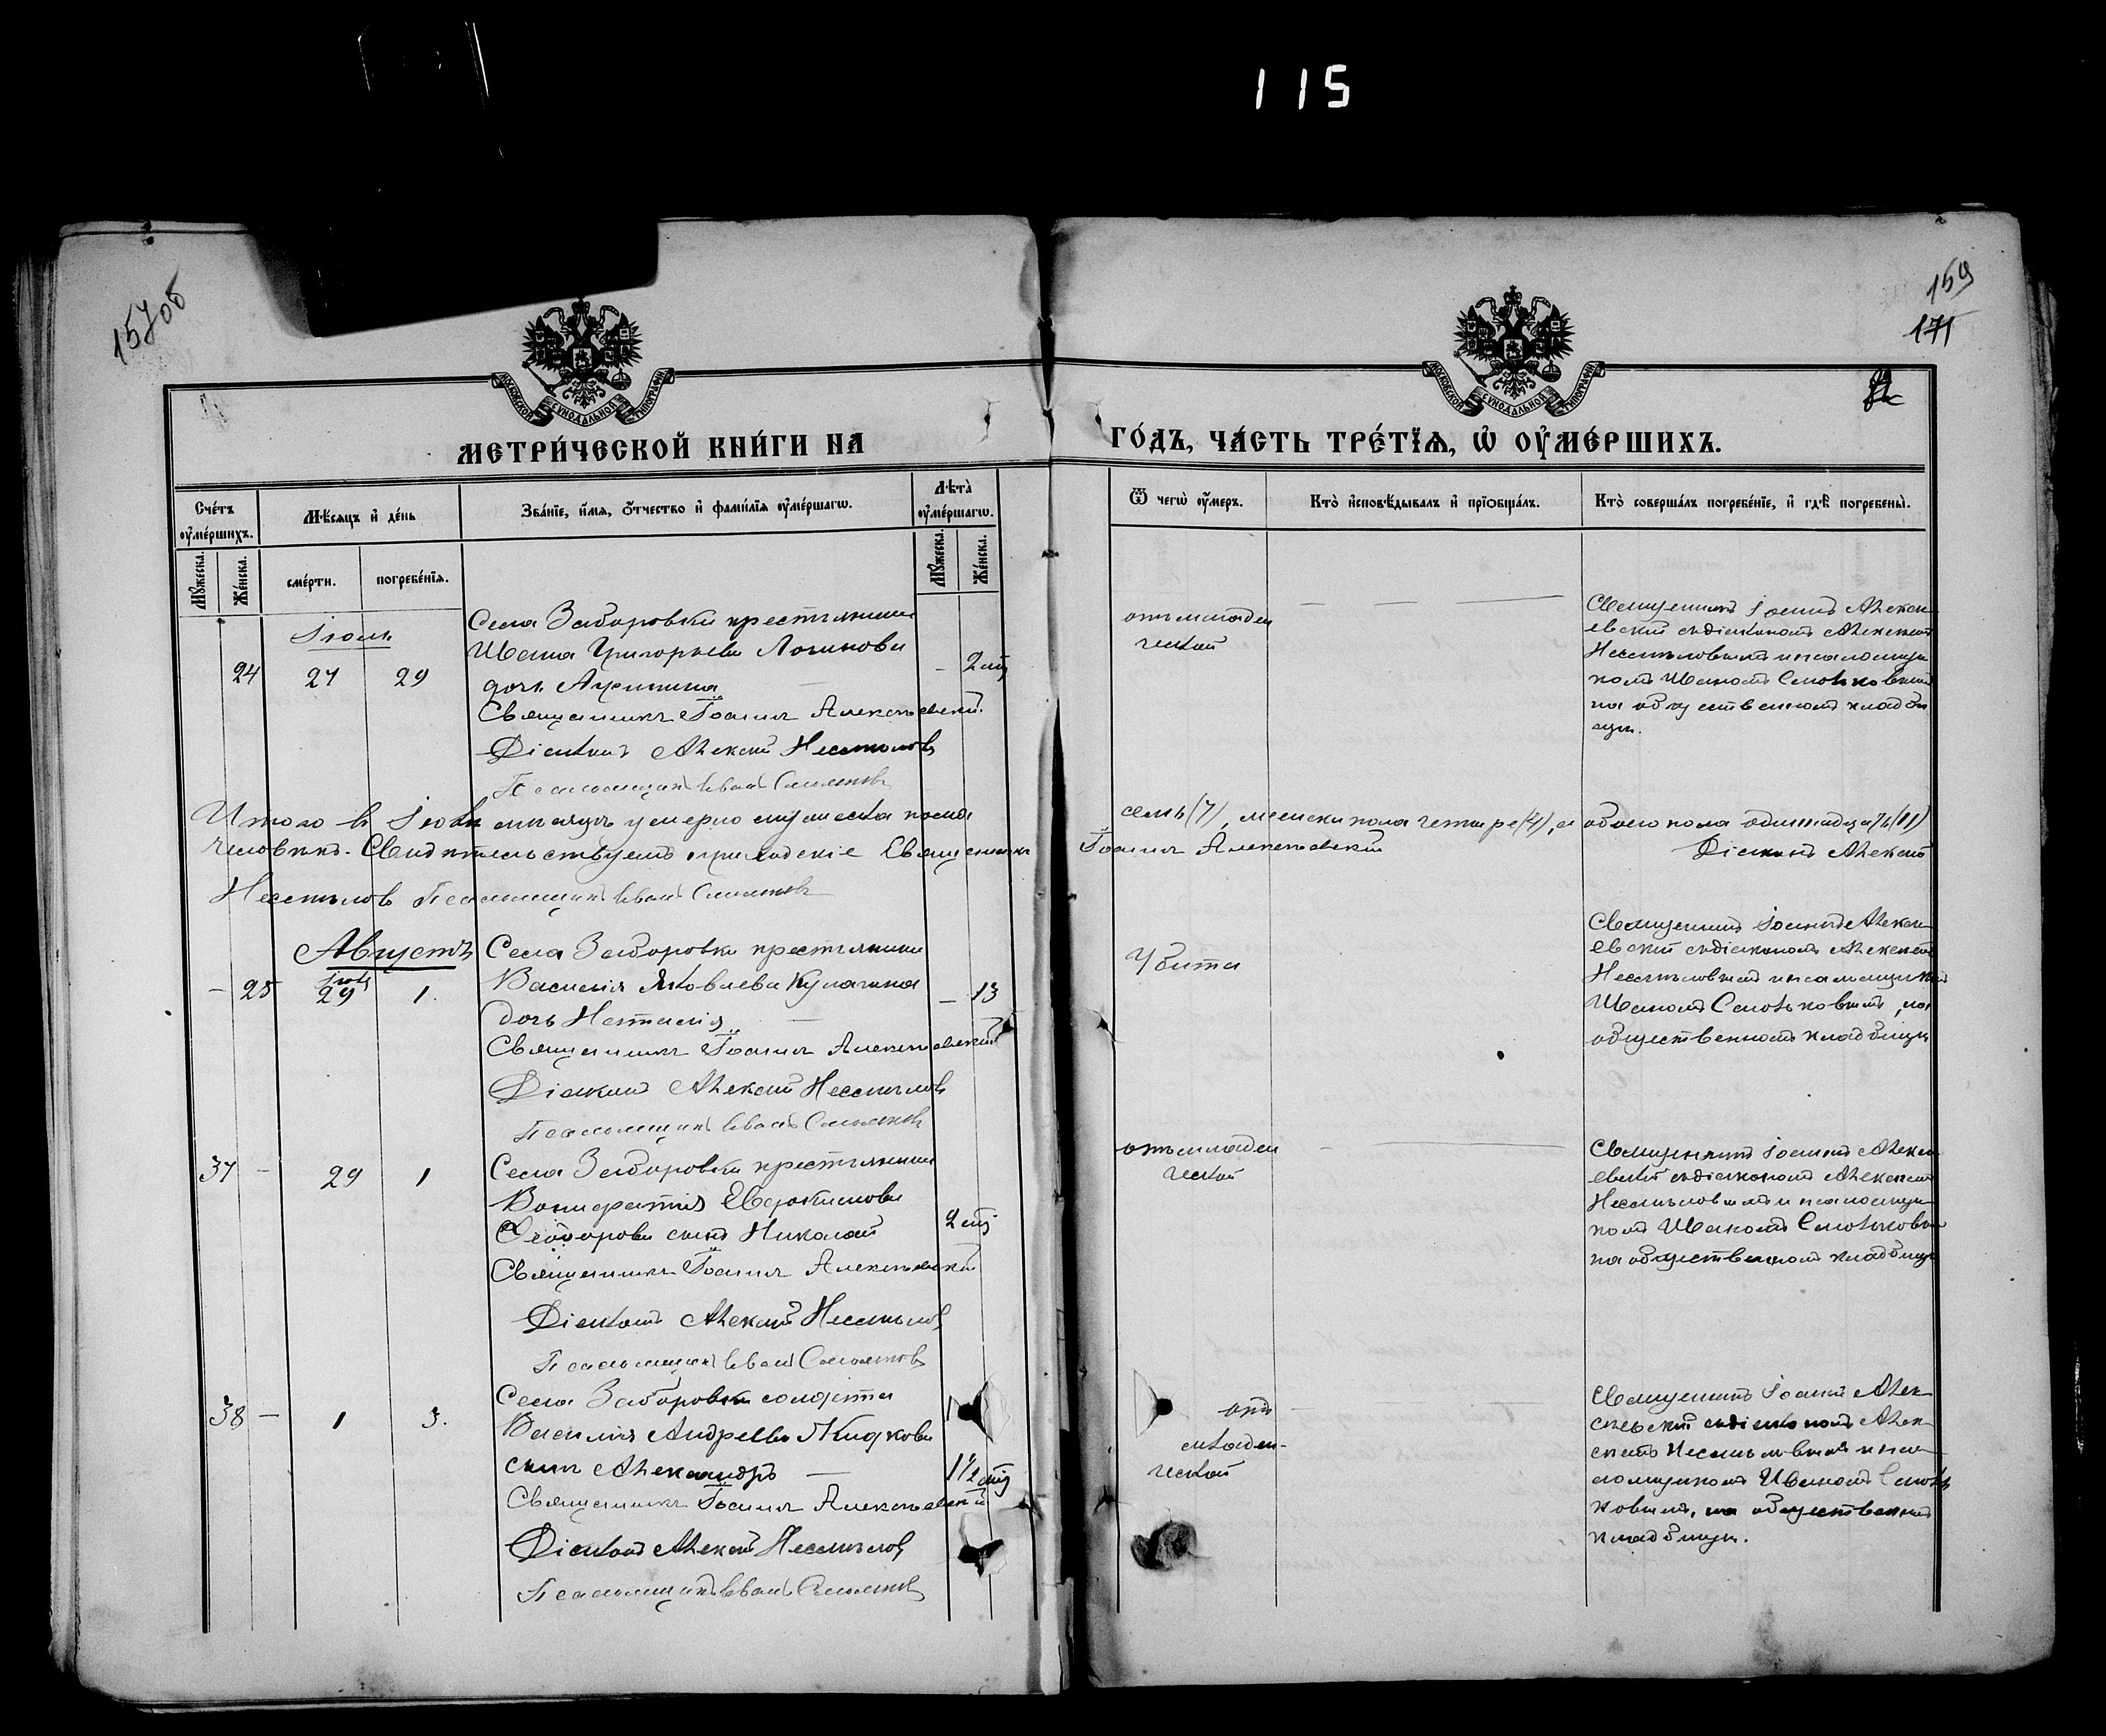 115
157об
159
171
МОСКОВСКОЙ СѴНОДАЛЬНОЙ ТИПОГРАФІИ
МОСКОВСКОЙ СѴНОДАЛЬНОЙ ТИПОГРАФІИ
МЕТРИ́ЧЕСКОЙ КНИ́ГИ НА ГО́ДЪ, ЧА́СТЬ ТРЕ́ТЇѦ, Ѡ҆ ОУ҆МЕ́РШИХЪ.
Сче́тъ оу҆ме́ршихъ.
Мѣ́сяцъ и҆ де́нь
Зва́нїе, и҆́мя, ѻ҆́тчество и҆ фами́лїя оу҆ме́ршагѡ.
Лѣта̀ оу҆ме́ршагѡ.
Ѿ чегѡ̀ оу҆́меръ.
Кто̀ и҆сповѣ́дывалъ и҆ прїѻбща́лъ.
Кто̀ соверша́лъ погребе́нїе, и҆ гдѣ̀ погребены̀.
Мꙋ́жеска.
Же́нска.
сме́рти.
погребе́нїя.
Мꙋ́жеска.
Же́нска.
Іюль
24 27 29
Села Заборовки крестьянина
Ивана Григорьева Логинова
дочь Акулина
– 2 мц
Священникъ Іоаннъ Алексѣевскій
Діаконъ Алексѣй Несмѣловъ
Псаломщикъ Иванъ Смольковъ
отъ младен
ческой
Священникъ Іоаннъ Алексѣ
евскій съ діакономъ Алексѣемъ
Несмѣловымъ и псаломщи
комъ Иваномъ Смольковымъ
на общественномъ кладби
щѣ.
Итого въ Іюлѣ мѣсяцѣ умерло мужеска пола семь (7), женска пола четыре (4), а обоего пола одинадцать (11)
человѣкъ. Свидѣтельствуемъ приходскіе Священникъ Іоаннъ Алексѣевскій Діаконъ Алексѣй
Несмѣловъ Псаломщикъ Иванъ Смольковъ
Августъ
Іюль
– 25 29 1.
Села Заборовки крестьянина
Василія Яковлева Кулагина
дочь Наталія
– 13
Священникъ Іоаннъ Алексѣевскій
Діаконъ Алексѣй Несмѣловъ
Псаломщикъ Иванъ Смольковъ
Убита
Священникъ Іоаннъ Алексѣ
евскій съ діакономъ Алексѣемъ
Несмѣловымъ и псаломщикомъ
Иваномъ Смольковымъ, на
общественномъ кладбищѣ
37 – 29 1
Села Заборовки крестьянина
Вонифатія Евдокимова
Ѳеодорова сынъ Николай
2 мц
Священникъ Іоаннъ Алексѣевскій
Діаконъ Алексѣй Несмѣловъ
Псаломщикъ Иванъ Смольковъ
отъ младен
ческой
Священникъ Іоаннъ Алексѣ
евскій съ діакономъ Алексѣемъ
Несмѣловымъ и псаломщи
комъ Иваномъ Смольковым
на общественномъ кладбищѣ
38 – 1 3.
Села Заборовки солдата
Василія Андреева Жидкова
сынъ Александръ
1 1/2 мц
Священникъ Іоаннъ Алексѣевскій
Діаконъ Алексѣй Несмѣловъ
Псаломщикъ Иванъ Смольковъ
отъ
младен-
ческой
Священникъ Іоаннъ Алек
сѣевскій съ діакономъ Алек
сѣемъ Несмѣловымъ и пса
ломщикомъ Иваномъ Смоль
ковымъ, на общественномъ
кладбищѣ.